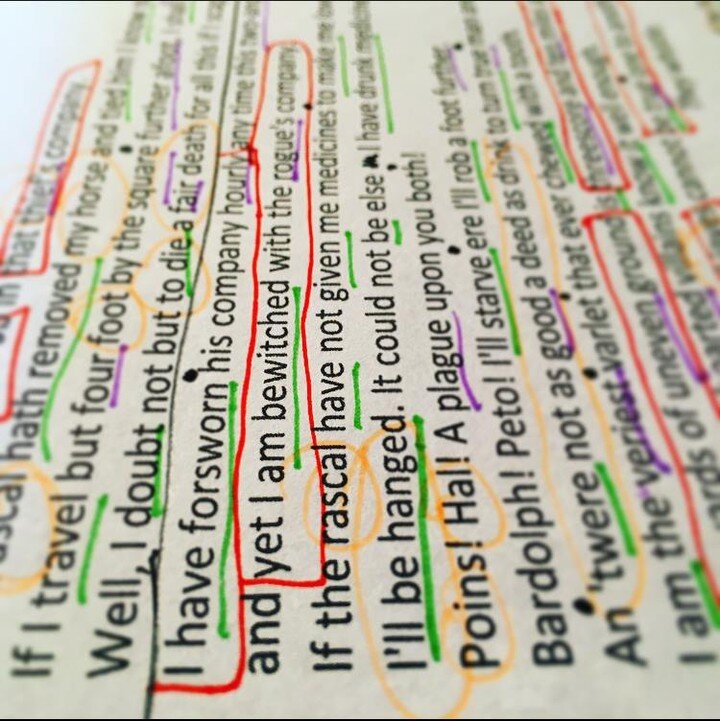 in that thief's company.
ascal hath removed my horse and tied him I know
If I travel but four foot by the square further afoot, I shall
Well, I doubt not but to die a fair death for all this if I scape
I have forsworn his company hourly any time this two and
and yet I am bewitched with the rogue's company.
If the rascal have not given me medicines to make me
I'll be hanged. It could not be else I have drunk medicine
Poins! Hal! A plague upon you both!
Bardolph! Peto! I'll starve ere I'll rob a foot further.
An 'twere not as good a deed as drink to turn true man
I am the veriest varlet that ever chewed with a tooth.
ards of uneven ground is threescore and